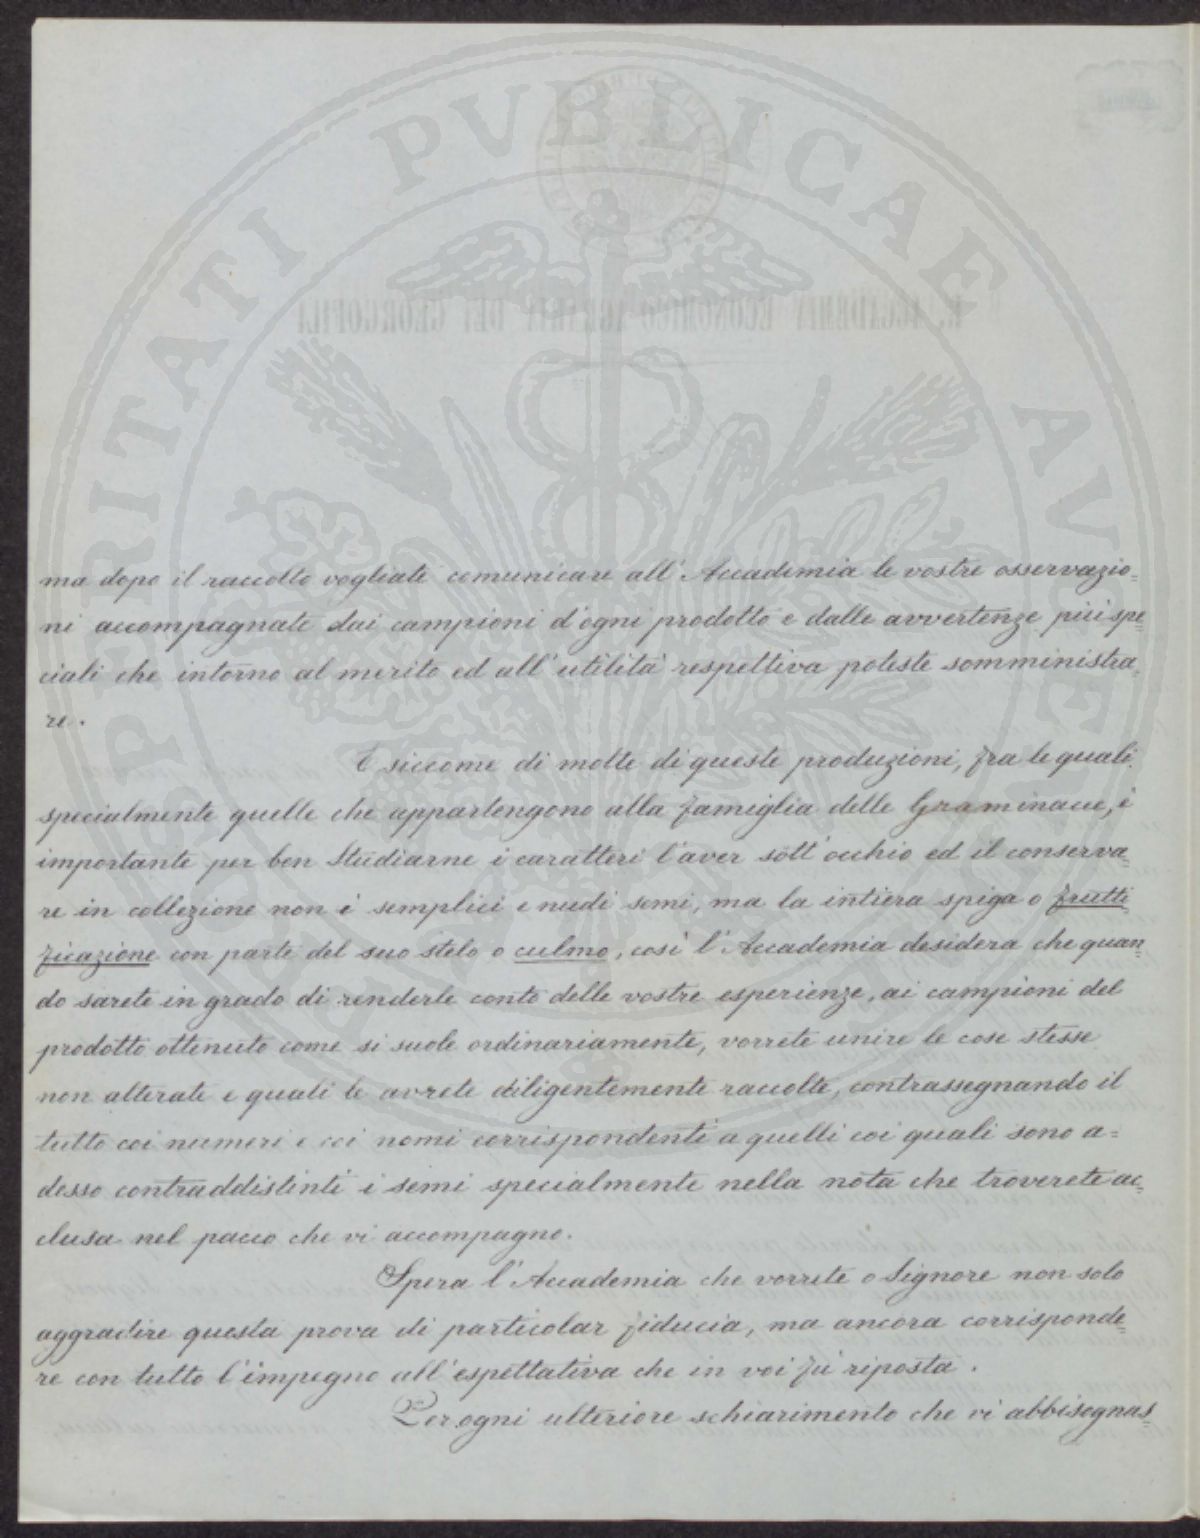 PROSPERITATI PVBLICAE AVGENDAE
R. ACCADEMIA ECONOMICO-AGRARIA DEI GEORGOFILI
ma dopo il raccolto vogliate comunicare all'Accademia le vostre osservazio=
ni accompagnate dai campioni d'ogni prodotto e dalle avvertenze più spe=
ciali che intorno al merito ed all'utilità respettiva poteste somministra=
re.
E siccome di molte di queste produzioni, fra le quali
specialmente quelle che appartengono alla famiglia delle Graminacee, è
importante per ben studiarne i caratteri l'aver sott'occhio ed il conserva=
re in collezione non i semplici e nudi semi, ma la intiera spiga o frutti=
ficazione con parte del suo stelo o culmo, così l'Accademia desidera che quan=
do sarete in grado di renderle conto delle vostre esperienze, ai campioni del
prodotto ottenuto come si suole ordinariamente, vorrete unire le cose stesse
non alterate e quali le avrete diligentemente raccolte, contrassegnando il
tutto coi numeri e coi nomi corrispondenti a quelli coi quali sono a=
desso contraddistinti i semi specialmente nella nota che troverete ac=
clusa nel pacco che vi accompagno.
Spera l'Accademia che vorrete o Signore non solo
aggradire questa prova di particolar fiducia, ma ancora corrisponde=
re con tutto l'impegno all'espettativa che in voi fù riposta.
Per ogni ulteriore schiarimento che vi abbisognas=